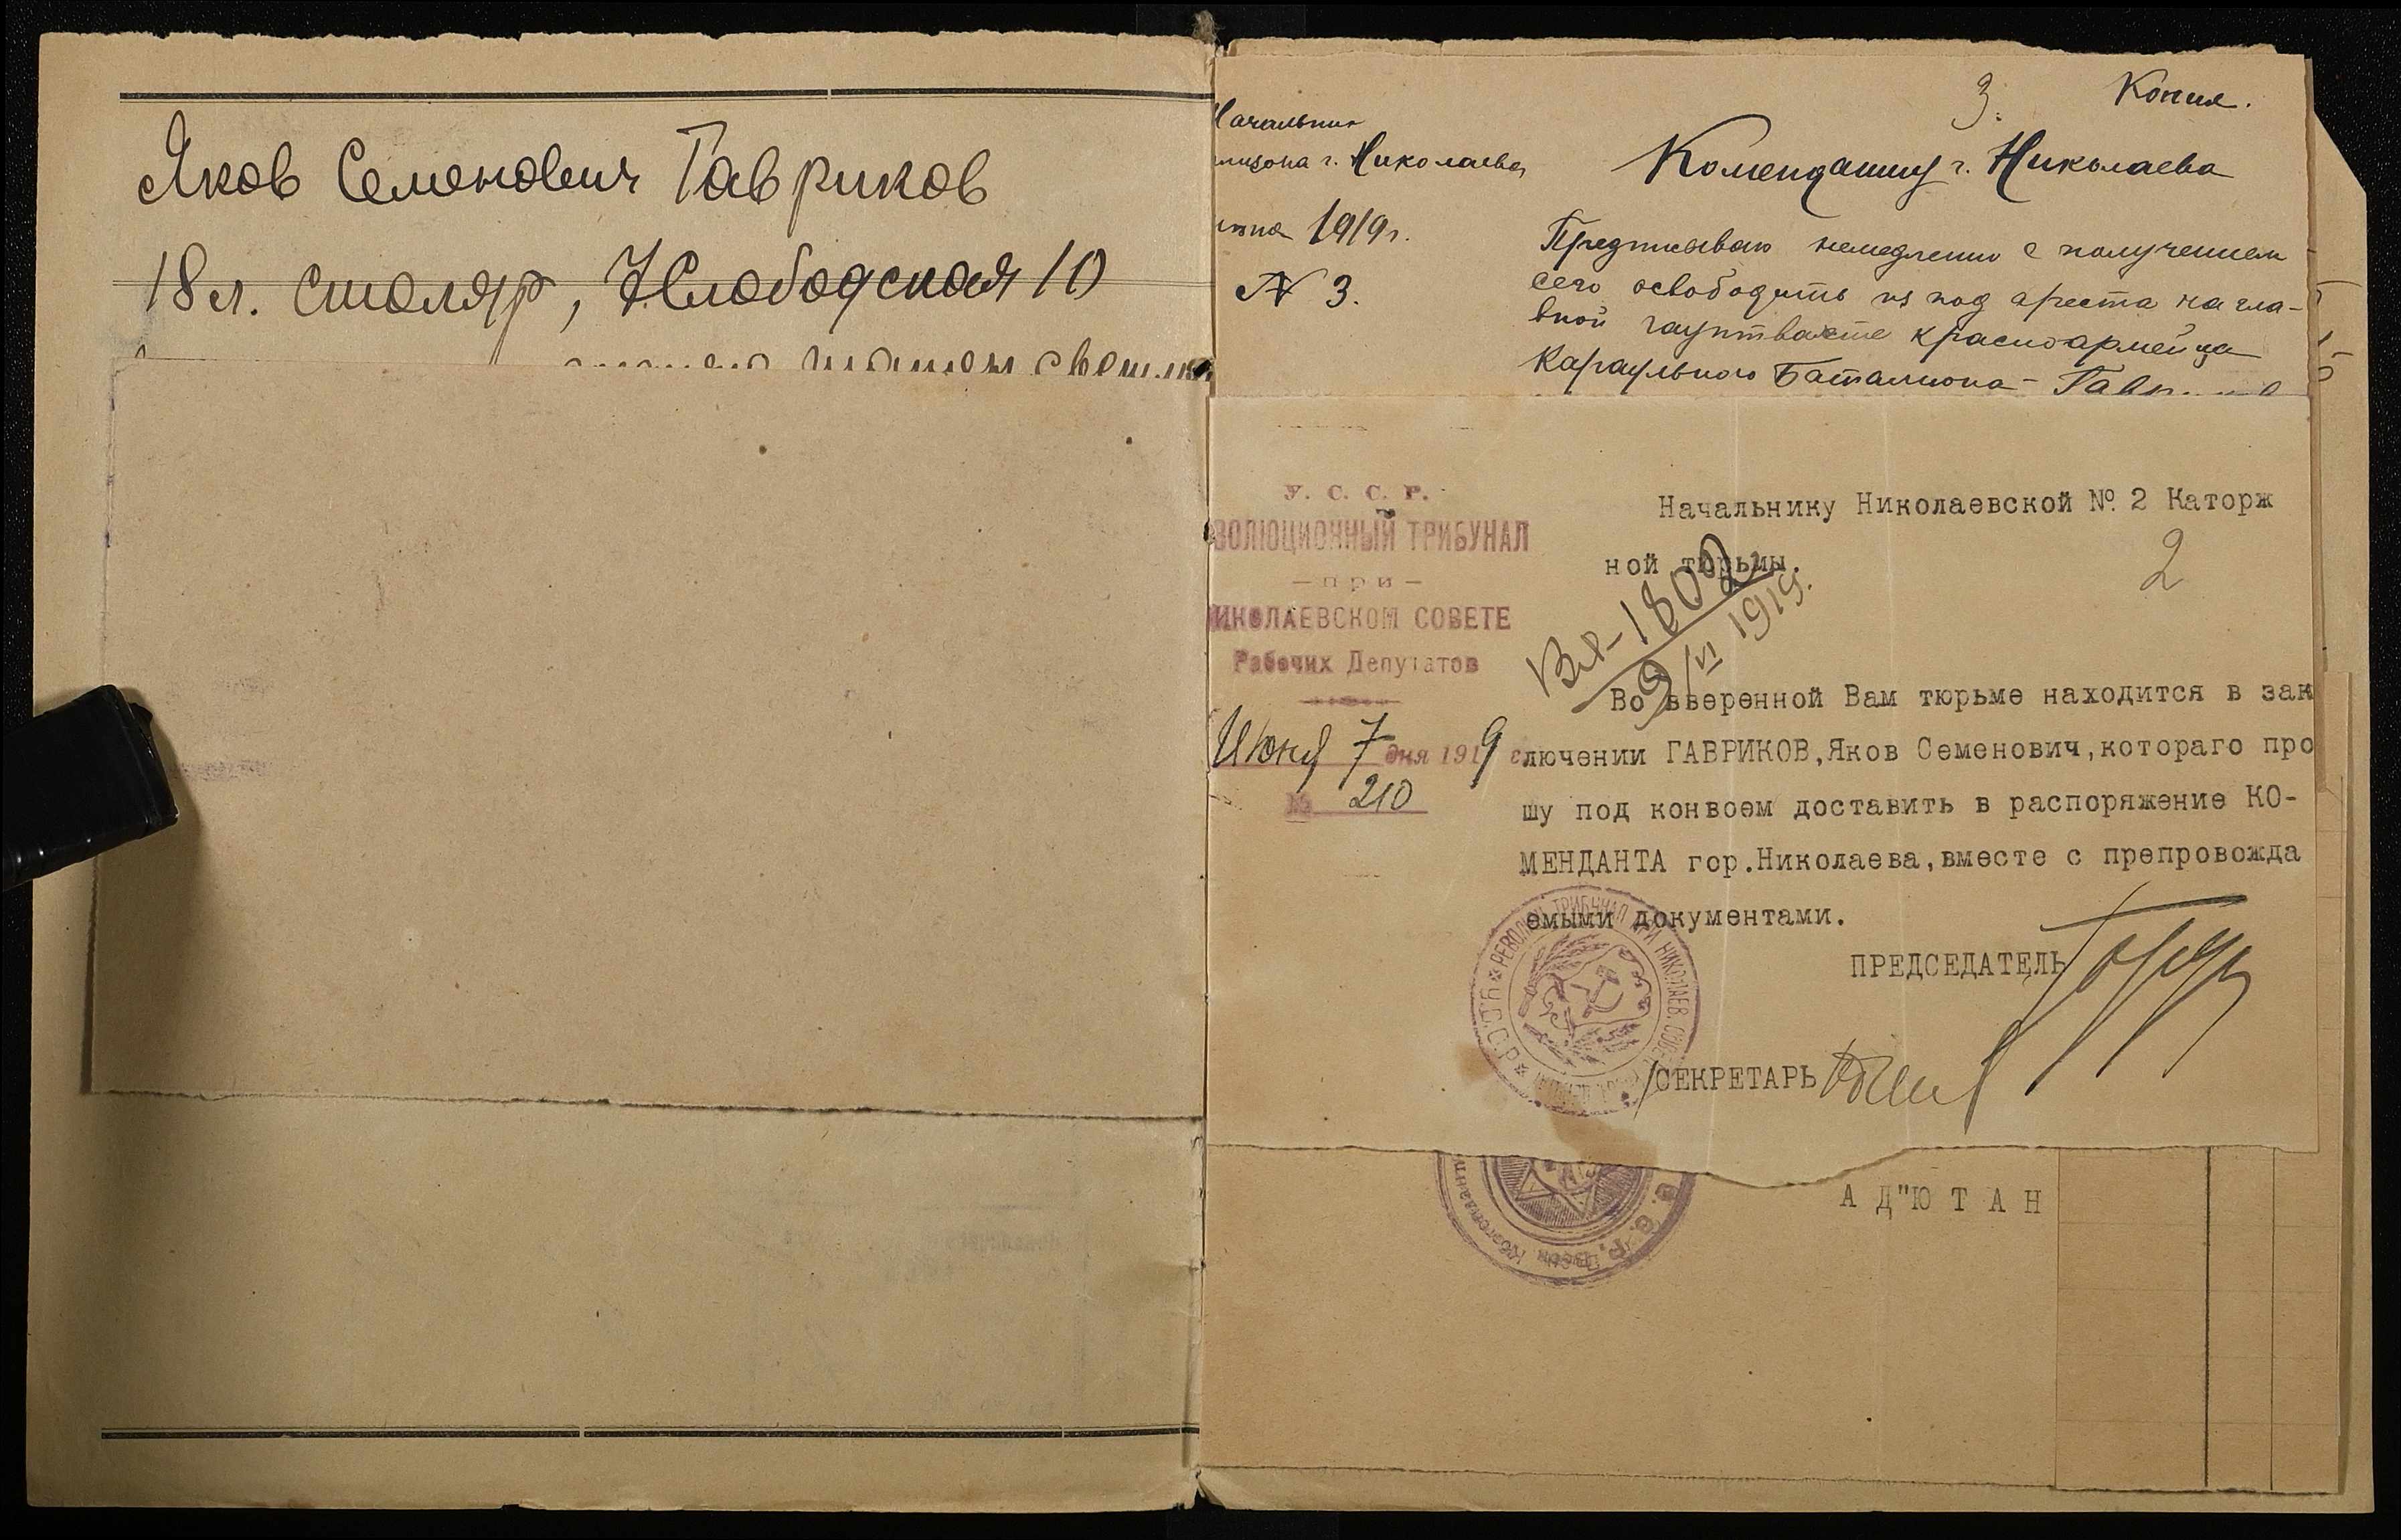 Яков Семенович Гавриков
18 л. столяр, Слободская 10
3. Копия.
Начальник
г. Николаева
Коменданту г. Николаева
1919 г.
№ 3.
Предписываю немедленно с получением
сего освободить из под ареста на гла-
вной гауптвахте красноармейца
Караульного Баталиона -
У. С. С. Р.
ВОЛЮЦИОННЫЙ ТРИБУНАЛ
— при —
ИКОЛАЕВСКОМ СОВЕТЕ
Рабочих Депутатов
Июня 7 дня 1919 г
№ 210
Начальнику Николаевской № 2 Каторж
ной тюрьмы.
2
Вх-1802
9/VI 1919.
Во вверенной Вам тюрьме находится в зак
лючении ГАВРИКОВ,Яков Семенович,котораго про
шу под конвоем доставить в распоряжение КО-
МЕНДАНТА гор.Николаева,вместе с препровожда
емыми документами.
ПРЕДСЕДАТЕЛЬ
/СЕКРЕТАРЬ
У.С.С.Р. РЕВОЛЮЦ. ТРИБУНАЛ ПРИ НИКОЛАЕВ.
А Д"Ю Т А Н